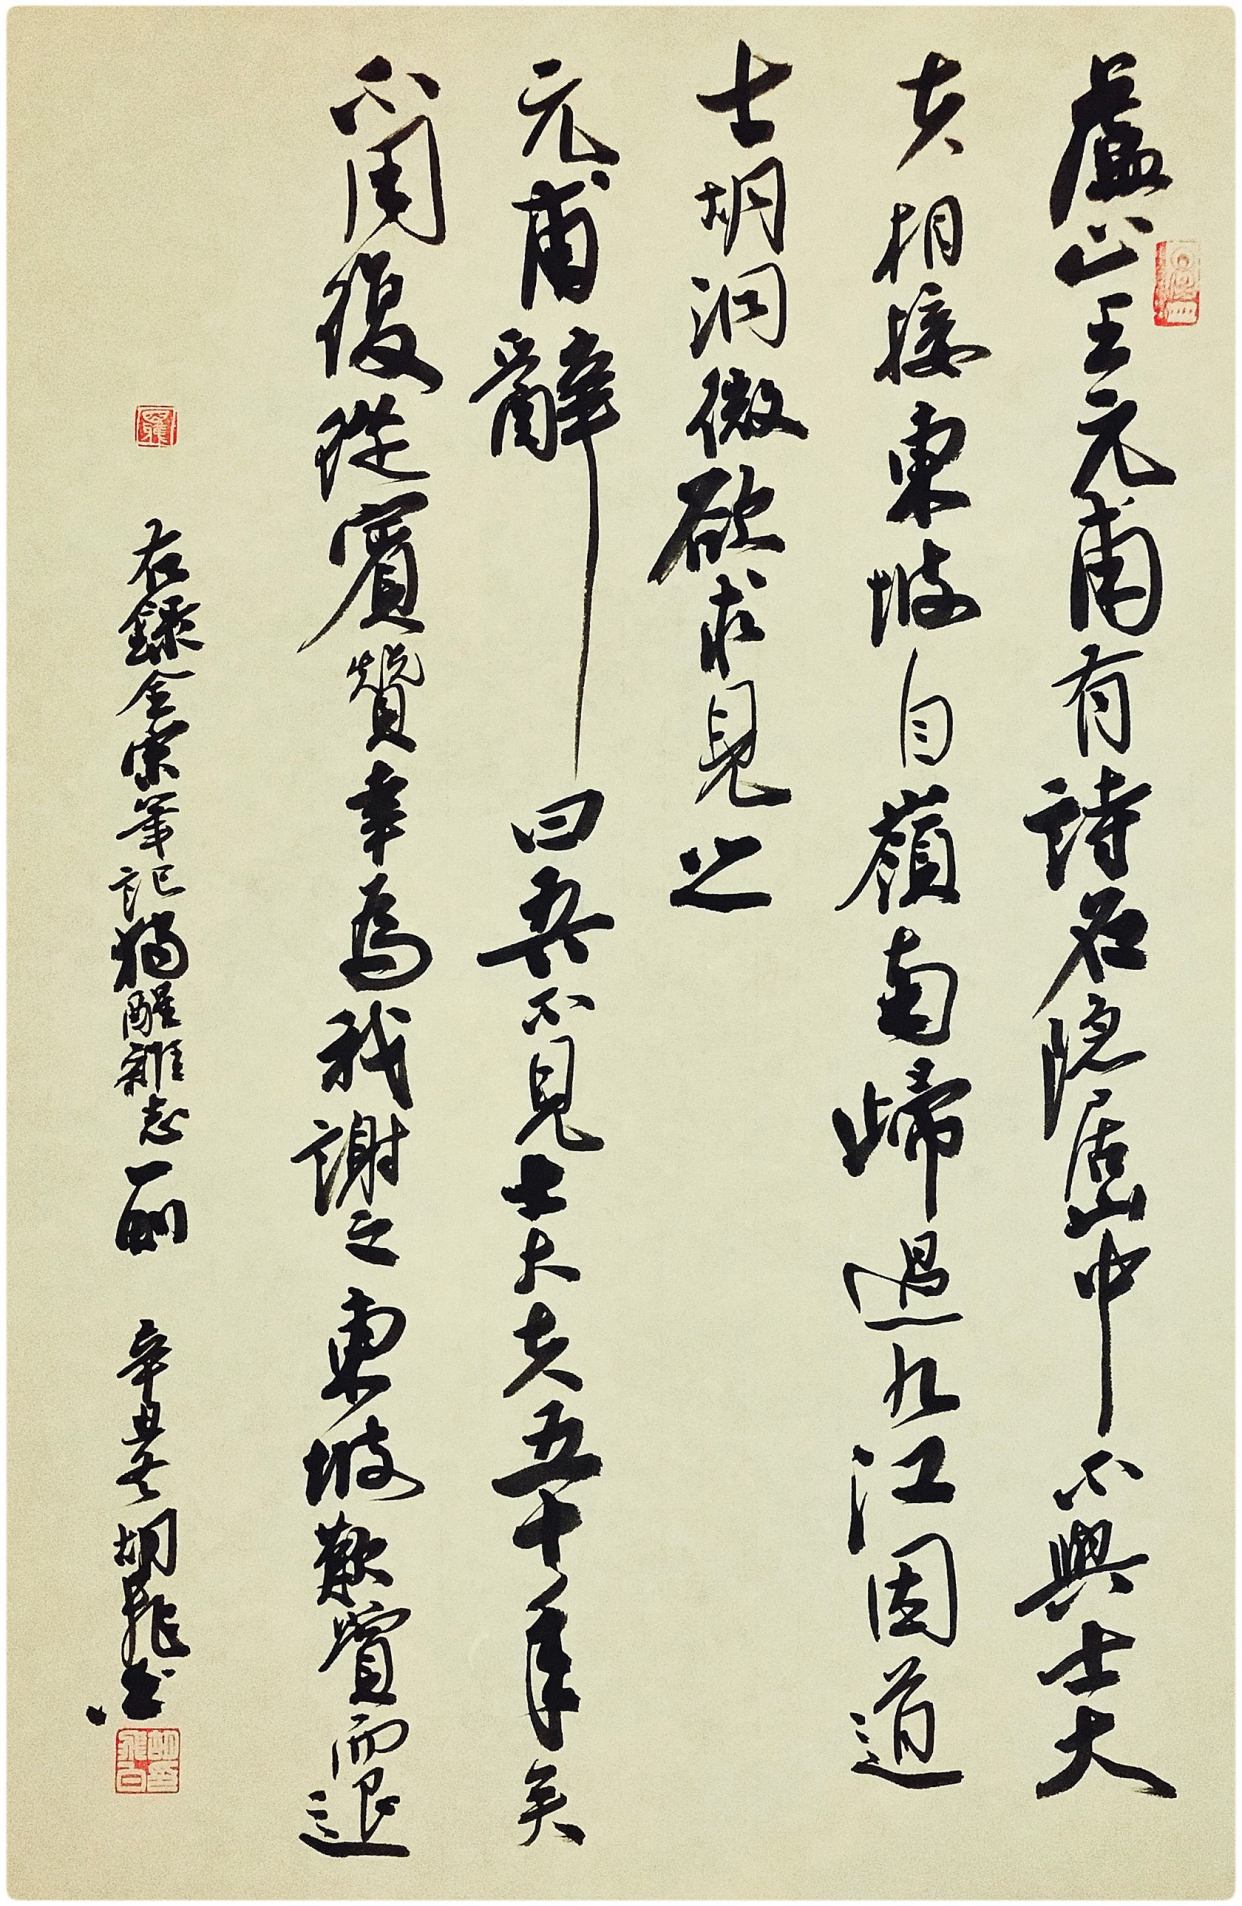 盧山王元甫有詩名隐居山中不與士大
夫相接東坡自嶺南歸過九江因道
士胡洞微欲求見之
元甫辭曰吾不見士大夫五十年矣
不用復從賓贊幸為我謝之東坡歎賞而退
右錄全宋筆記獨醒雜志一則 辛丑冬胡飛書